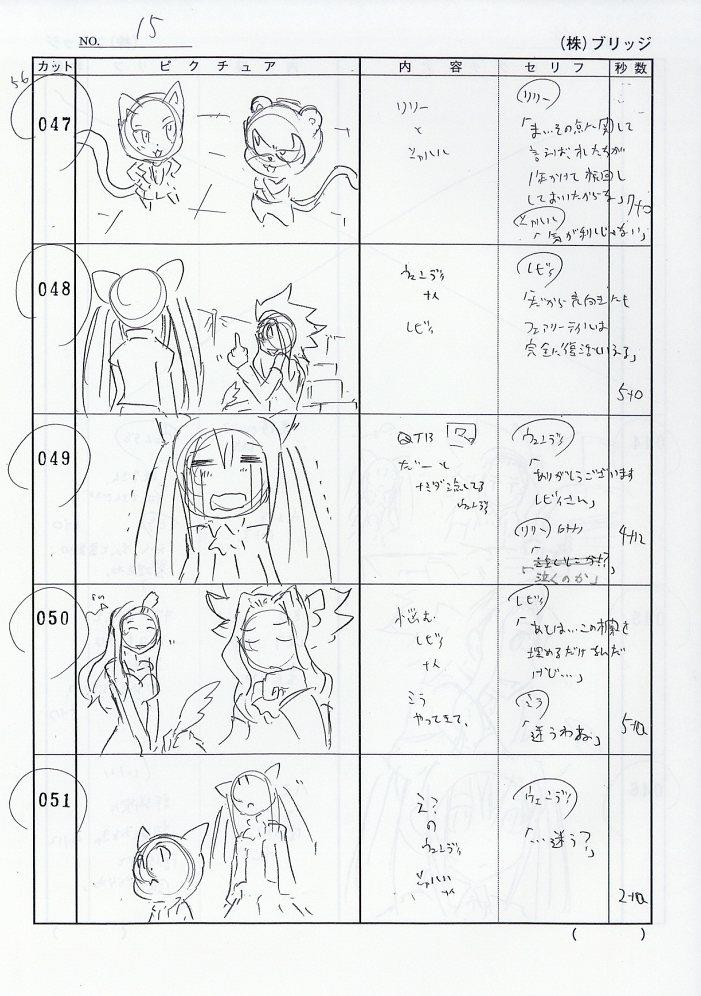 NO. 15
(株)ブリッジ
カット ピクチュア 内容 セリフ 秒数
56
047
リリー
と
シャルル
リリー
「ま…その点に関して
言えば、オレたちが
1年かけて根回し
しておいたからな」
7+0
シャルル
048
ウェンディ
ナメ
レビィ
レビィ
「だから表向きにも
フェアリーテイルは
完全に復活といえる」
5+0
049
だーっと
ナミダ流してる
ウェンディ
ウェンディ
「ありがとうございます
レビィさん」
リリー
4+12
「泣くのか」
050
悩む
レビィ
ナメ
レビィ
「あとは…この欄を
埋めるだけなんだ
けど…」
「迷うわね」
051
え?
の
ウェンディ
シャルル
ナメ
ウェンディ
「…迷う?」
( )